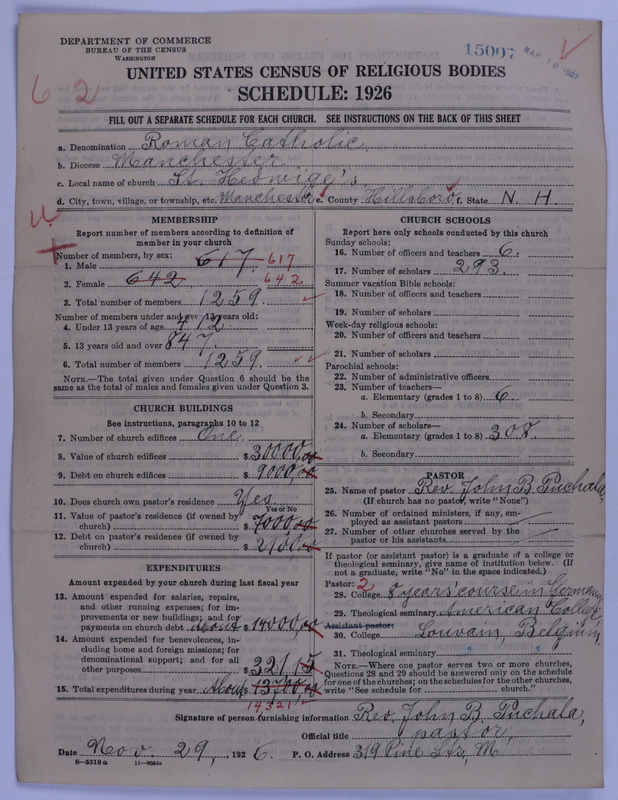 DEPARTMENT OF COMMERCE
BUREAU OF THE CENSUS
WASHINGTON
15007
MAR 10 1927
62
UNITED STATES CENSUS OF RELIGIOUS BODIES
SCHEDULE: 1926
FILL OUT A SEPARATE SCHEDULE FOR EACH CHURCH. SEE INSTRUCTIONS ON THE BACK OF THIS SHEET
a. Denomination Roman Catholic
b. Diocese Manchester
c. Local name of church St. Hedwige's
d. City, town, village, or township, etc. Manchester e. County Hillsboro f. State N. H.
MEMBERSHIP
Report number of members according to definition of
member in your church
Number of members, by sex:
1. Male 617 617
2. Female 642 642
3. Total number of members 1259.
Number of members under and over 13 years old:
4. Under 13 years of age 412.
5. 13 years old and over 847.
6. Total number of members 1259.
NOTE.—The total given under Question 6 should be the
same as the total of males and females given under Question 3.
CHURCH BUILDINGS
See instructions, paragraphs 10 to 12
7. Number of church edifices One.
8. Value of church edifices $ 30000,00
9. Debt on church edifices $ 9000,00
10. Does church own pastor's residence Yes
Yes or No
11. Value of pastor's residence (if owned by
church) $ 7000,00
12. Debt on pastor's residence (if owned by
church) $ 2100,00
EXPENDITURES
Amount expended by your church during last fiscal year
13. Amount expended for salaries, repairs,
and other running expenses; for im-
provements or new buildings; and for
payments on church debt About $ 14000,00
14. Amount expended for benevolences, in-
cluding home and foreign missions; for
denominational support; and for all
other purposes $ 321,15
15. Total expenditures during year About $ 13700,00
14321
CHURCH SCHOOLS
Report here only schools conducted by this church
Sunday schools:
16. Number of officers and teachers 6.
17. Number of scholars 293.
Summer vacation Bible schools:
18. Number of officers and teachers
19. Number of scholars
Week-day religious schools:
20. Number of officers and teachers
21. Number of scholars
Parochial schools:
22. Number of administrative officers
23. Number of teachers—
a. Elementary (grades 1 to 8) 6
b. Secondary
24. Number of scholars—
a. Elementary (grades 1 to 8) 308.
b. Secondary
PASTOR
25. Name of pastor Rev. John B. Puchala,
(If church has no pastor, write "None")
26. Number of ordained ministers, if any, em-
ployed as assistant pastors
27. Number of other churches served by the
pastor or his assistants
If pastor (or assistant pastor) is a graduate of a college or
theological seminary, give name of institution below. (If
not a graduate, write "No" in the space indicated.)
Pastor: 2
28. College 8 years' course in Germany
29. Theological seminary American College,
Assistant pastor:
30. College Louvain, Belgium.
31. Theological seminary
NOTE.—Where one pastor serves two or more churches,
Questions 28 and 29 should be answered only on the schedule
for one of the churches; on the schedules for the other churches,
write "See schedule for church."
Signature of person furnishing information Rev. John B. Puchala,
Official title pastor,
Date Nov. 29, , 1926. P. O. Address 319 Pine Str, M
8—5518 a